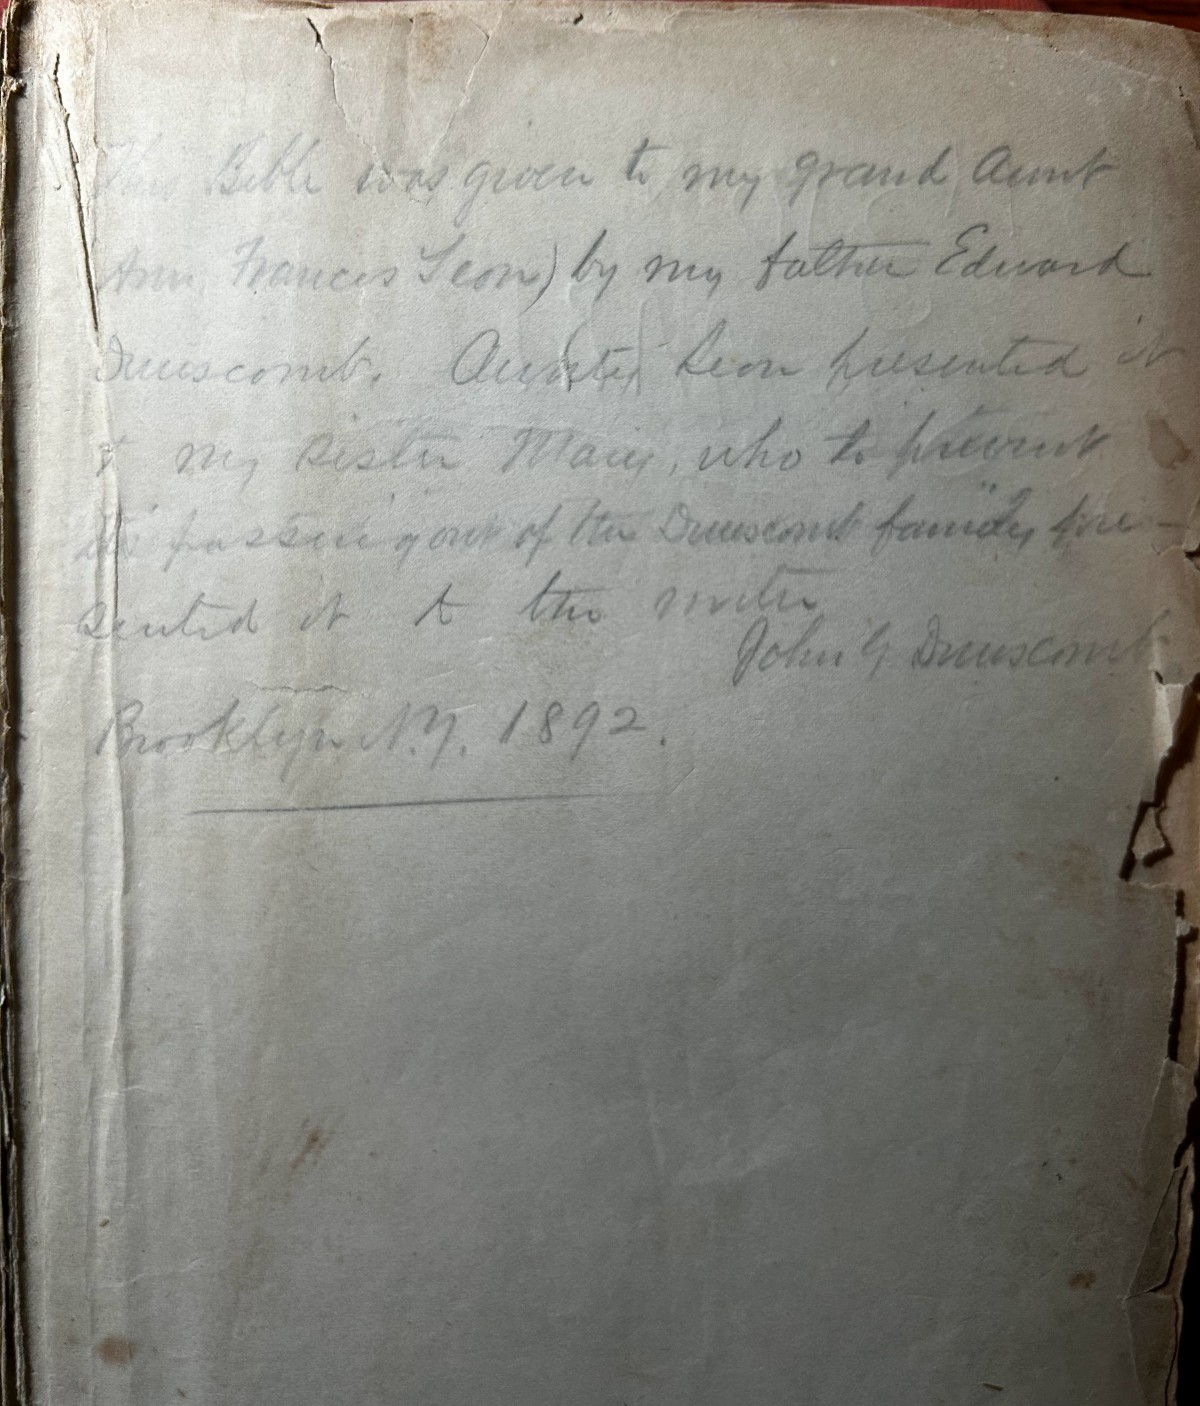 This Bible was given to my grand Aunt
Ann Frances Leon) by my father Edward
Dunscomb. Aunt Leon presented it
to my sister Mary, who to prevent
its passing out of the Dunscomb family pre-
sented it to the writer
John G Dunscomb
Brooklyn N.Y. 1892.